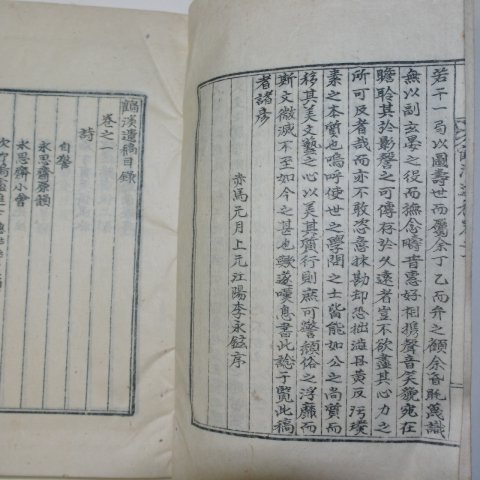 若干一局以圖壽世而屬余丁乙而弁之顧余昏耗蔑識
無以副玄墨之役而撫念疇昔惠好相携聲音笑貌宛在
瞻聆其於影響之可傳存於久遠者豈不欲盡其心力之
所可及者哉而亦不敢恣意抹勘却恐拙澁丹黃反污璞
素之本質也嗚呼使世之學問之士皆能如公之尚質而
移其美文藝之心以美其彛行則庶可警頹俗之浮靡而
斯文微滅不至如今之甚也歟遂嘆息書此諗于覽此稿
者諸彥
赤馬元月上元江陽李永鉉序
鶴淡遺稿目錄
卷之一
詩
自警
永思齋原韻
永思齋小會
次